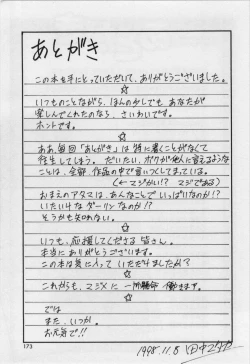 あとがき
この本を手にとっていただいて、ありがとうございました。
☆
いつものことながら、ほんの少しでも あなたが
楽しんでくれたのなら、さいわいです。
ホントです。
☆
ああ毎回「あとがき」は特に書くことがなくて
往生してしまう。だいたい、ボクが他人に言えるような
ことは、全部、作品の中で言いつくしてまっている。
(←マジかい!? マジである)
おまえのアタマは、あんなことで いっぱいなのか!?
いたいけなダーリンなのか!?
そうかも知れない。
☆
いつも、応援してくださる 皆さん。
本当にありがとうございます。
この本は気に入って いただけましたか?
☆
これからも、マジメに 一所懸命 働きます。
☆
では
また、いつか。
お元気で!!
173
1998.11.8